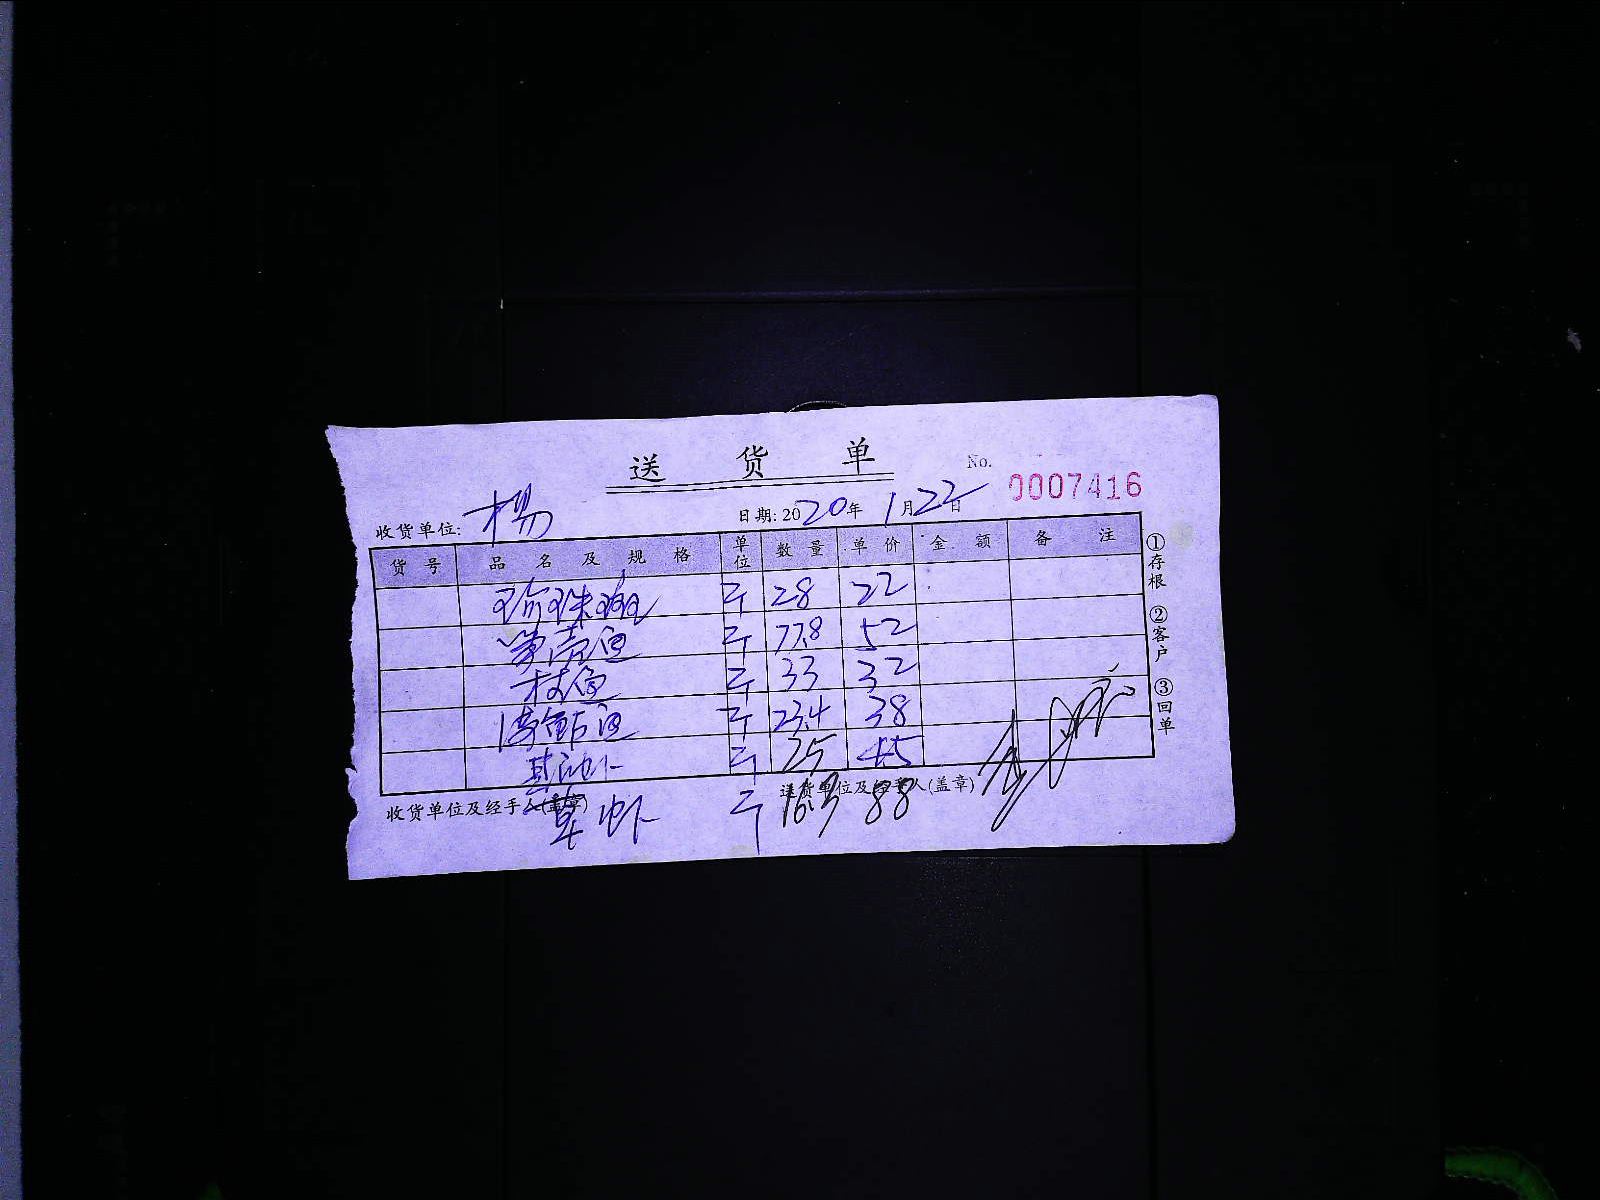 送 货 单
No. 0007416
收货单位: 杨
日期: 2020年 1月22日
货 号 品 名 及 规 格 单位 数 量 单 价 金 额 备 注
珍珠斑 斤 28 22
笋壳鱼 斤 77.8 52
斤 33 32
斤 23.4 38
基围虾 斤 25 45
收货单位及经手人(盖章) 送货单位及经手人(盖章)
草虾 斤 16.3 88
①存根 ②客户 ③回单